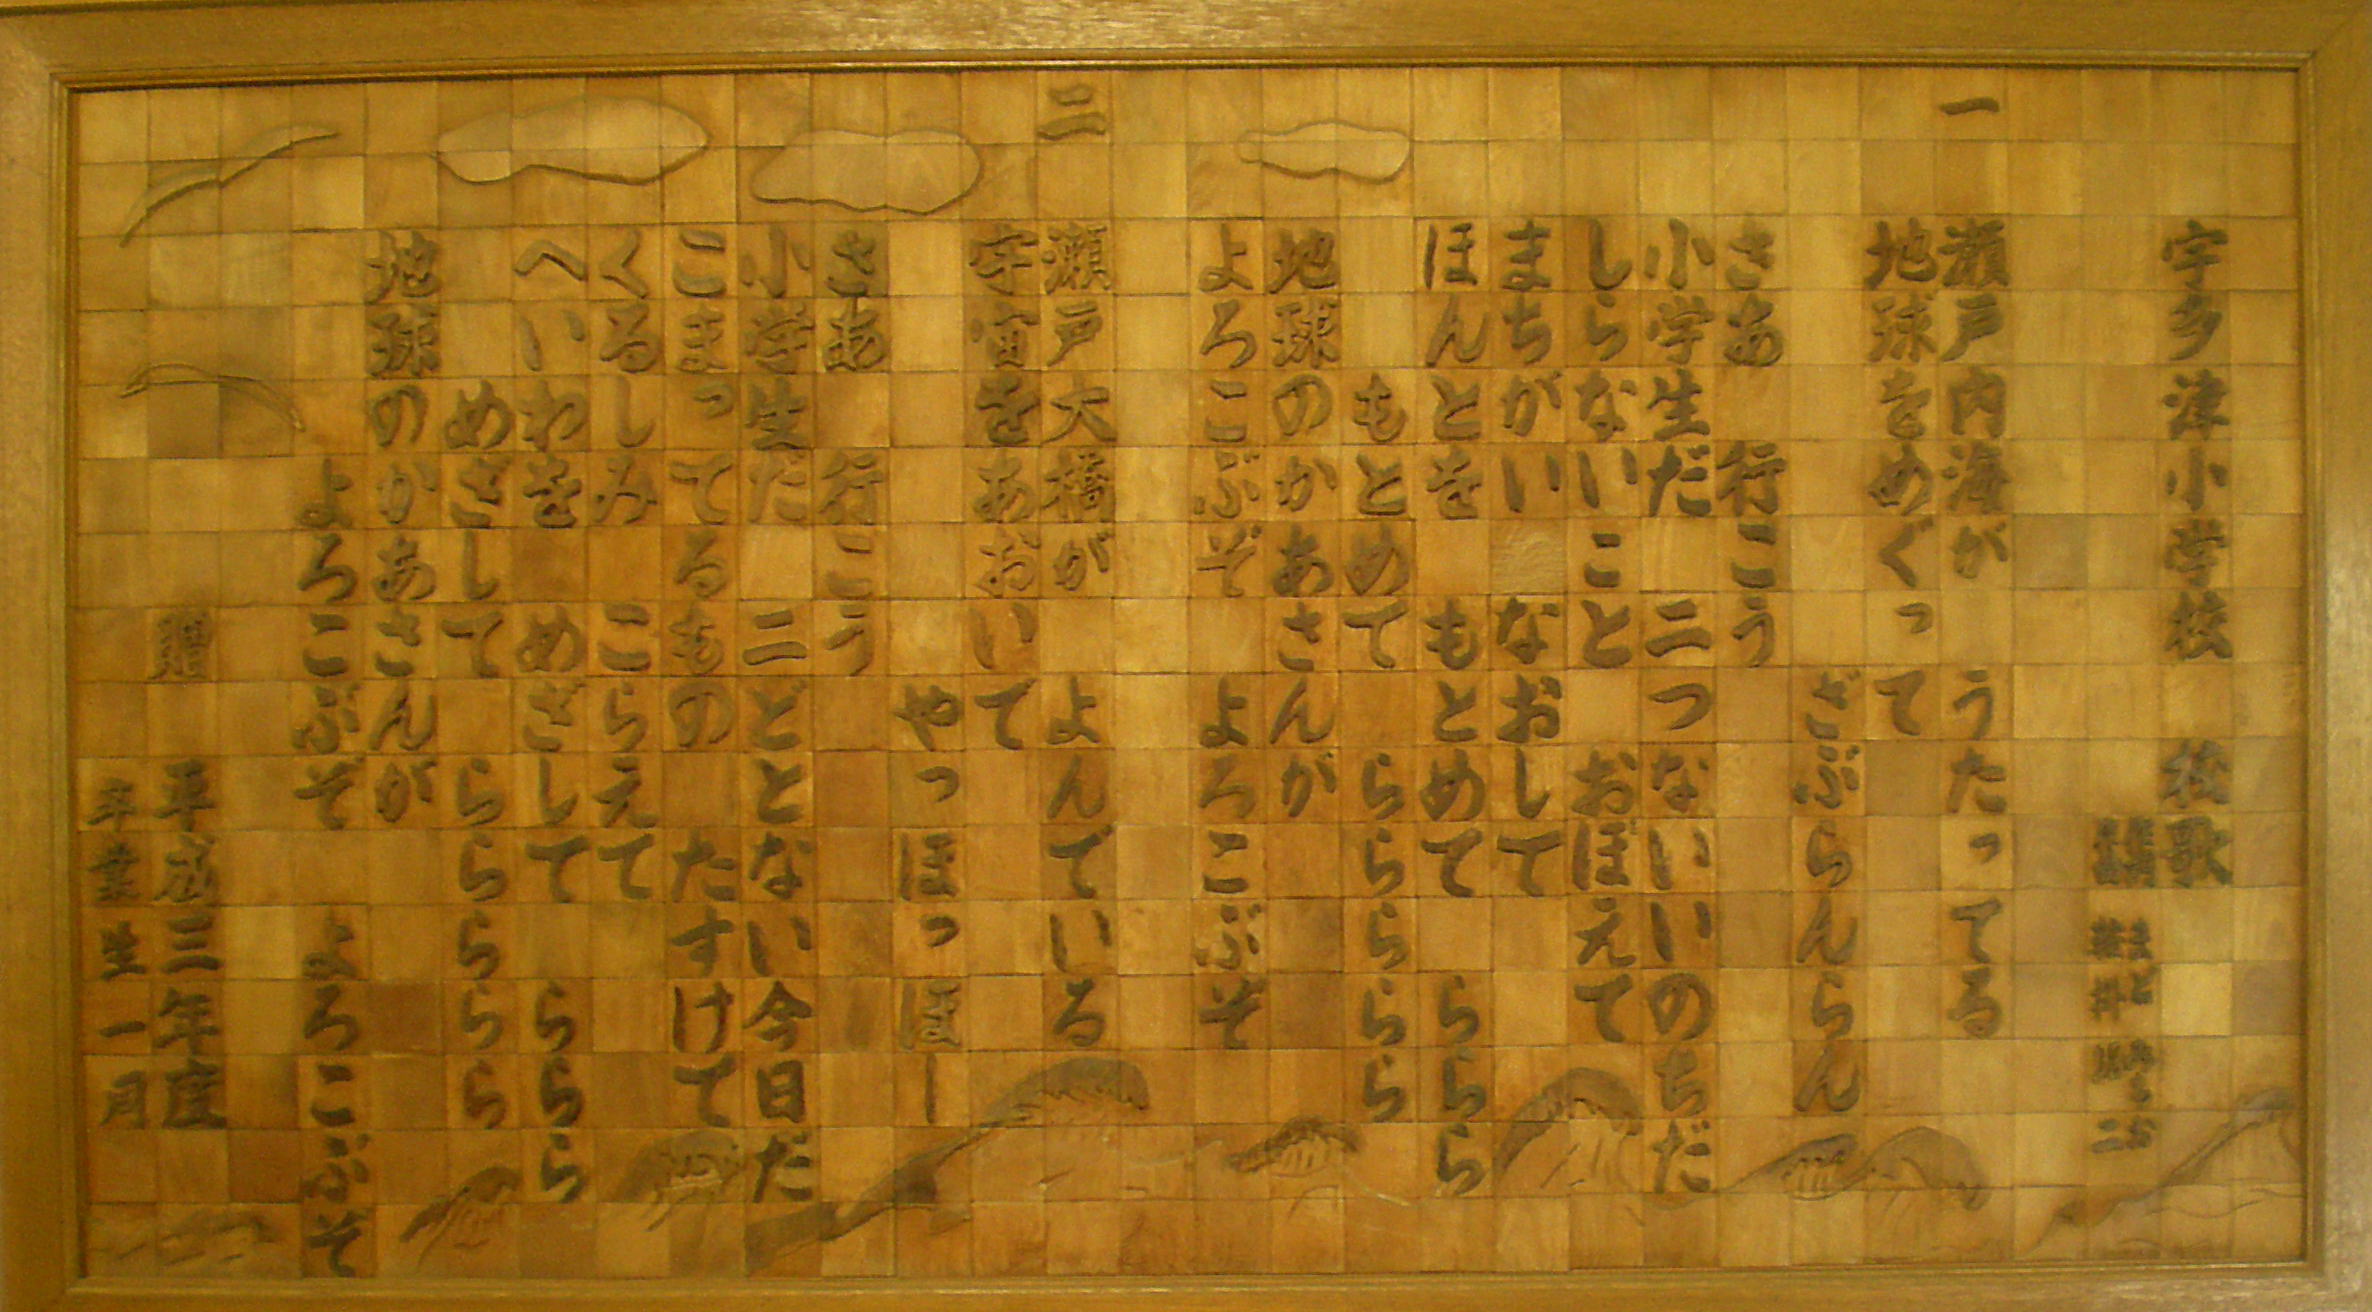 宇多津小学校　校歌
まど みちお
一
瀬戸内海が　うたってる
地球をめぐって
ざぶらんらん
さあ　行こう
小学生だ　二つないいのちだ
しらないこと　おぼえて
まちがい　なおして
ほんとを　もとめて　ららら
もとめて　ららららら
地球のかあさんが
よろこぶぞ　よろこぶぞ
二
瀬戸大橋が　よんでいる
宇宙をあおいて
やっほっほー
さあ　行こう
小学生だ　二どとない今日だ
こまってるもの　たすけて
くるしみ　こらえて
へいわを　めざして　ららら
めざして　ららららら
地球のかあさんが
よろこぶぞ　よろこぶぞ
贈　平成三年度
卒業生一同